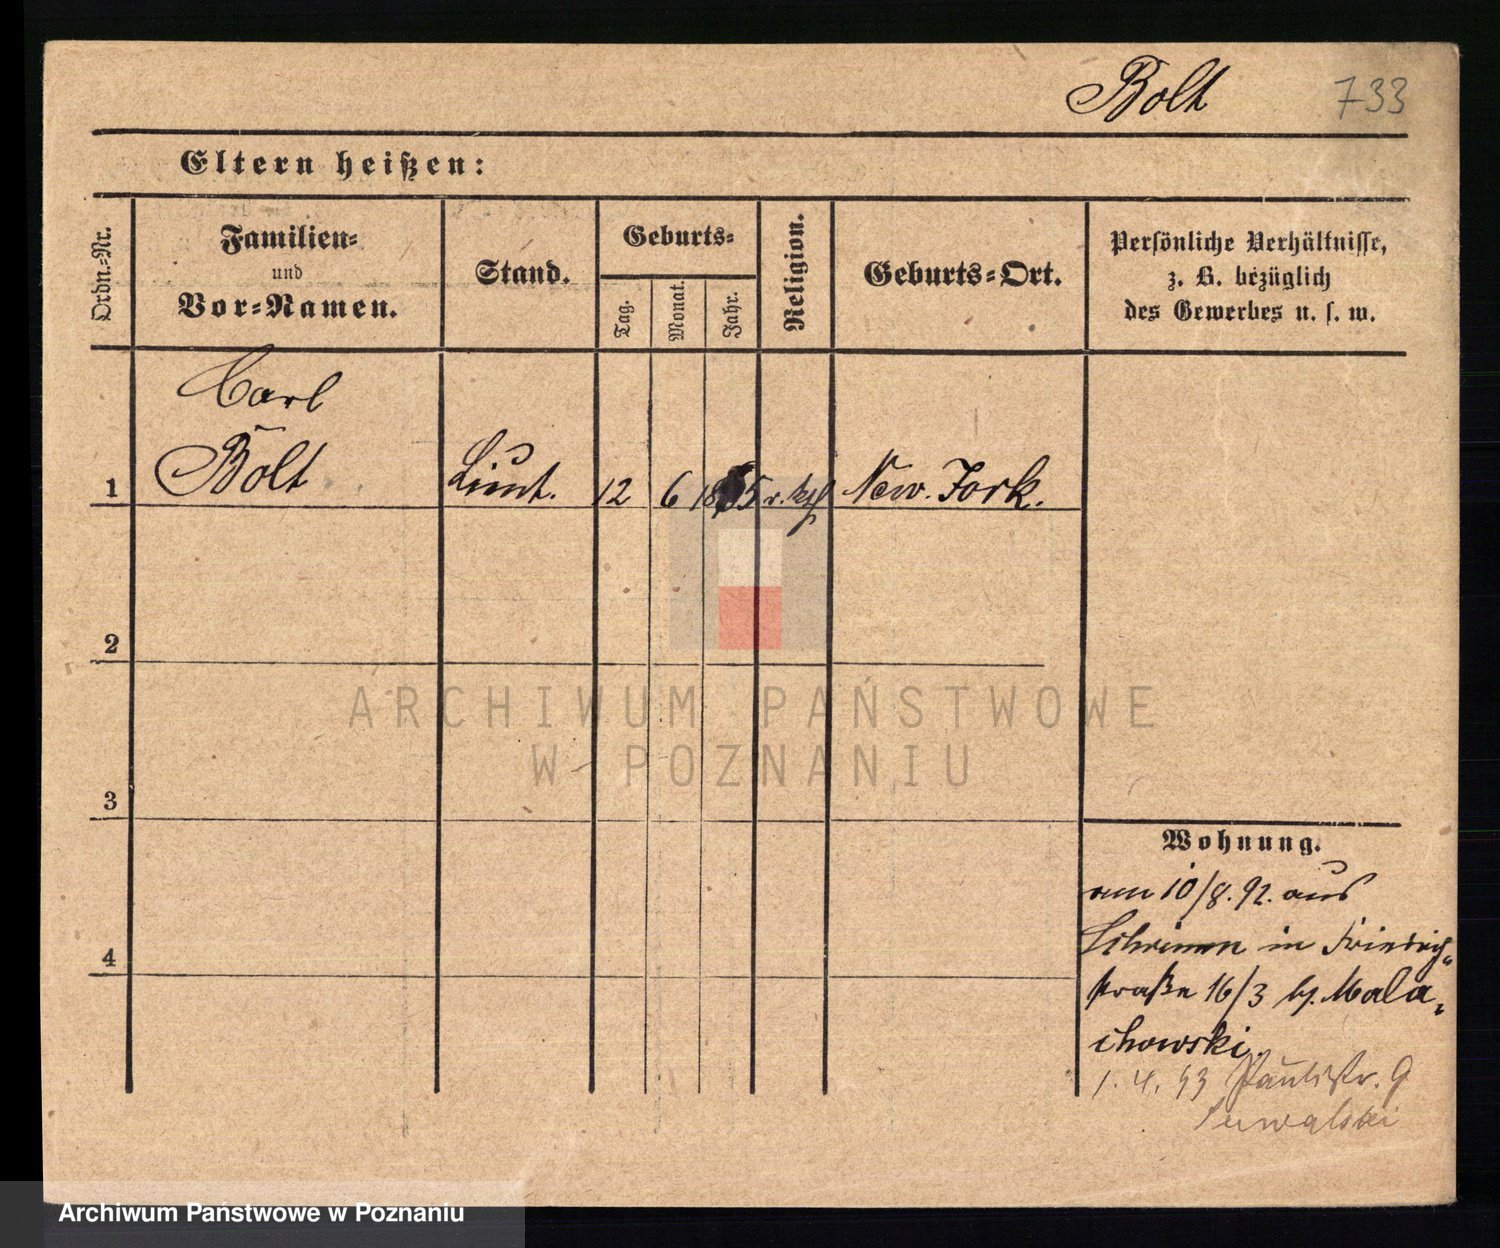 Bolt 733
Eltern heißen:
Ordn.-Nr.
Familien-
und
Vor-Namen.
Stand.
Geburts-
Tag.
Monat.
Jahr.
Religion.
Geburts-Ort.
Persönliche Verhältnisse,
z. B. bezüglich
des Gewerbes u. s. w.
Carl
1 Bolt Lieut. 12 6 18 5 New. York.
2
3
4
Wohnung.
am 10/8. 92. aus
Schrimm in Friedrich-
straße 16/3 bj. Mala-
chowski.
1. 4. 93 Paulistr. 9
ARCHIWUM PAŃSTWOWE
W POZNANIU
Archiwum Państwowe w Poznaniu